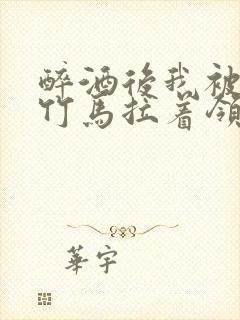 醉酒後我被
竹馬拉着領
華宇